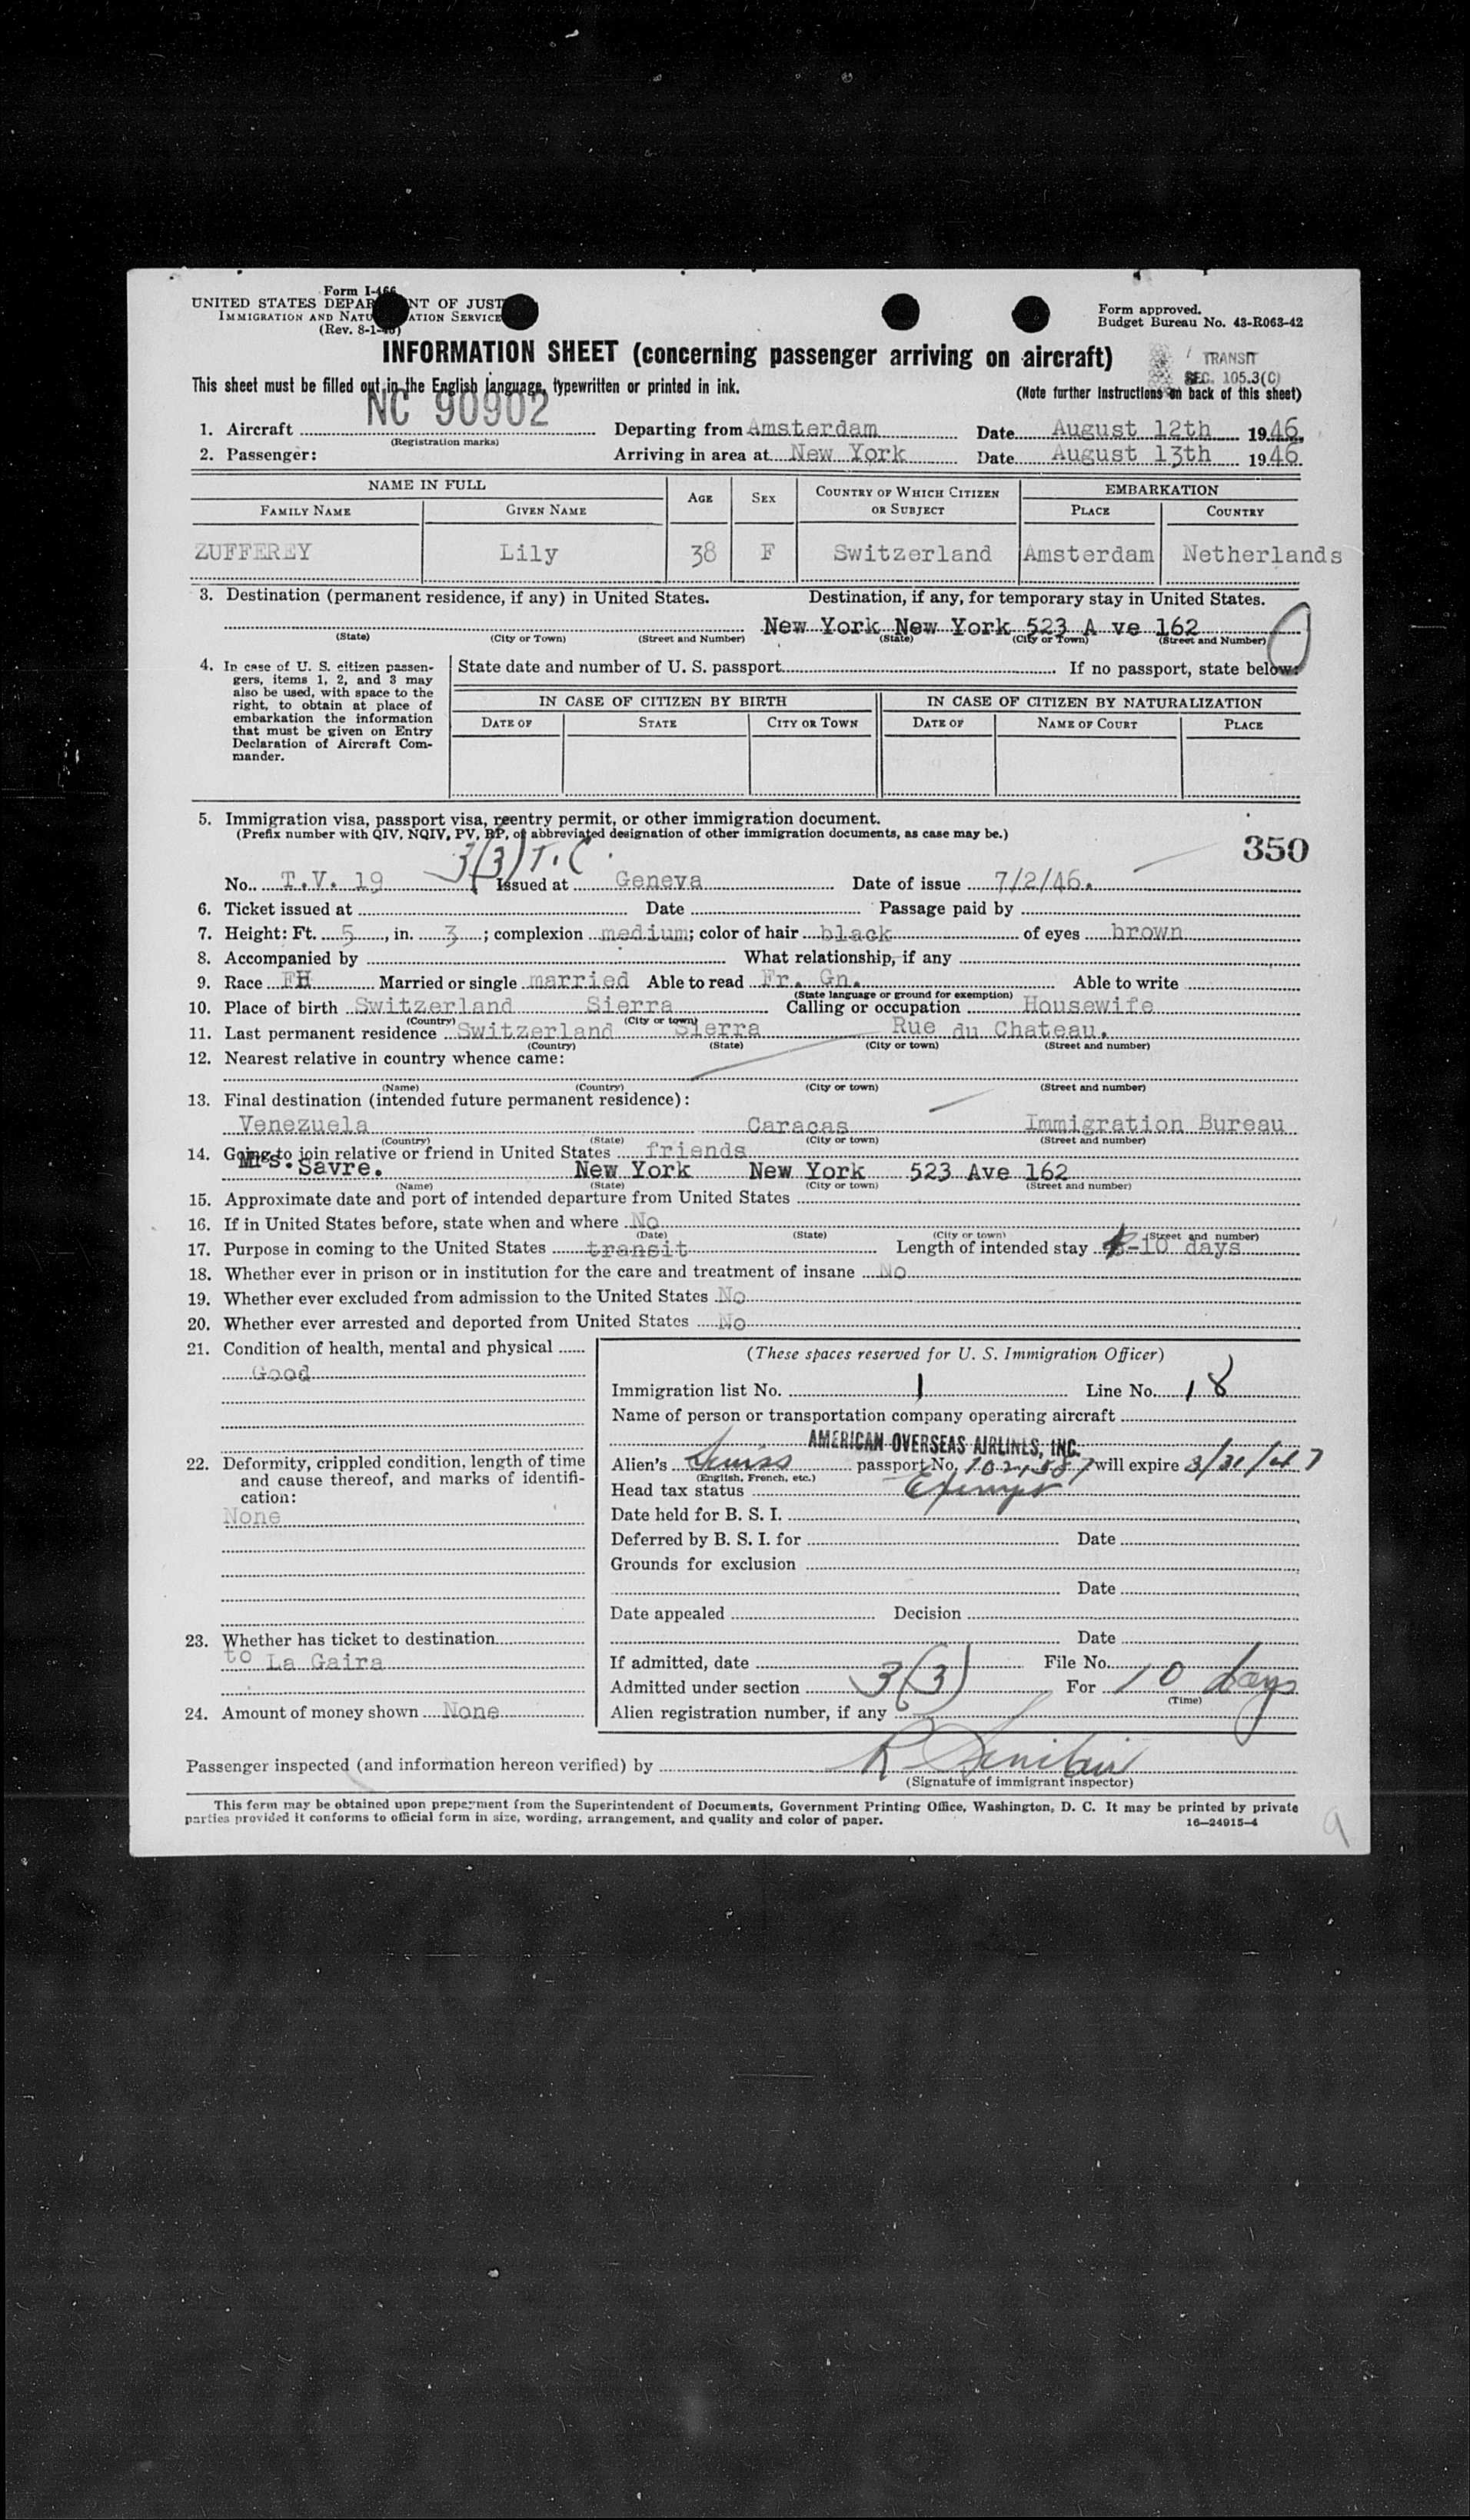 Form I-466
UNITED STATES DEPAR NT OF JUST
IMMIGRATION AND NATU ATION SERVICE
(Rev. 8-1-
Form approved.
Budget Bureau No. 43-R063-42
INFORMATION SHEET (concerning passenger arriving on aircraft)
TRANSIT
SEC. 105.3(C)
This sheet must be filled out in the English language, typewritten or printed in ink.
(Note further instructions on back of this sheet)
1. Aircraft NC 90902 Departing from Amsterdam Date August 12th 1946.
(Registration marks)
2. Passenger: Arriving in area at New York Date August 13th 1946
NAME IN FULL AGE SEX COUNTRY OF WHICH CITIZEN OR SUBJECT EMBARKATION
FAMILY NAME GIVEN NAME PLACE COUNTRY
ZUFFEREY Lily 38 F Switzerland Amsterdam Netherlands
3. Destination (permanent residence, if any) in United States. Destination, if any, for temporary stay in United States.
New York New York 523 A ve 162
(State) (City or Town) (Street and Number) (State) (City or Town) (Street and Number)
4. In case of U. S. citizen passengers, items 1, 2, and 3 may also be used, with space to the right, to obtain at place of embarkation the information that must be given on Entry Declaration of Aircraft Commander.
State date and number of U. S. passport If no passport, state below:
IN CASE OF CITIZEN BY BIRTH IN CASE OF CITIZEN BY NATURALIZATION
DATE OF STATE CITY OR TOWN DATE OF NAME OF COURT PLACE
5. Immigration visa, passport visa, reentry permit, or other immigration document.
(Prefix number with QIV, NQIV, PV, RP, or abbreviated designation of other immigration documents, as case may be.)
350
3(3) T.C.
No. T.V. 19 Issued at Geneva Date of issue 7/2/46.
6. Ticket issued at Date Passage paid by
7. Height: Ft. 5, in. 3; complexion medium; color of hair black of eyes brown
8. Accompanied by What relationship, if any
9. Race FH Married or single married Able to read Fr. Gn. Able to write
(State language or ground for exemption)
10. Place of birth Switzerland Sierra Calling or occupation Housewife
(Country) (City or town)
11. Last permanent residence Switzerland Sierra Rue du Chateau.
(Country) (State) (City or town) (Street and number)
12. Nearest relative in country whence came:
(Name) (Country) (City or town) (Street and number)
13. Final destination (intended future permanent residence):
Venezuela Caracas Immigration Bureau
(Country) (State) (City or town) (Street and number)
14. Going to join relative or friend in United States friends
Mrs. Savre. New York New York 523 Ave 162
(Name) (State) (City or town) (Street and number)
15. Approximate date and port of intended departure from United States
16. If in United States before, state when and where No
(Date) (State) (City or town) (Street and number)
17. Purpose in coming to the United States transit Length of intended stay 8-10 days
18. Whether ever in prison or in institution for the care and treatment of insane No
19. Whether ever excluded from admission to the United States No
20. Whether ever arrested and deported from United States No
21. Condition of health, mental and physical
Good
22. Deformity, crippled condition, length of time and cause thereof, and marks of identification:
None
23. Whether has ticket to destination
to La Gaira
24. Amount of money shown None
(These spaces reserved for U. S. Immigration Officer)
Immigration list No. 1 Line No. 18
Name of person or transportation company operating aircraft
AMERICAN OVERSEAS AIRLINES, INC.
Alien's Swiss passport No. will expire 3/31/47
(English, French, etc.)
Head tax status Exempt
Date held for B. S. I.
Deferred by B. S. I. for Date
Grounds for exclusion
Date
Date appealed Decision
Date
If admitted, date File No.
Admitted under section 3(3) For 10 days
(Time)
Alien registration number, if any
Passenger inspected (and information hereon verified) by R Sinclair
(Signature of immigrant inspector)
This form may be obtained upon prepayment from the Superintendent of Documents, Government Printing Office, Washington, D. C. It may be printed by private
parties provided it conforms to official form in size, wording, arrangement, and quality and color of paper.
16—24915-4
9